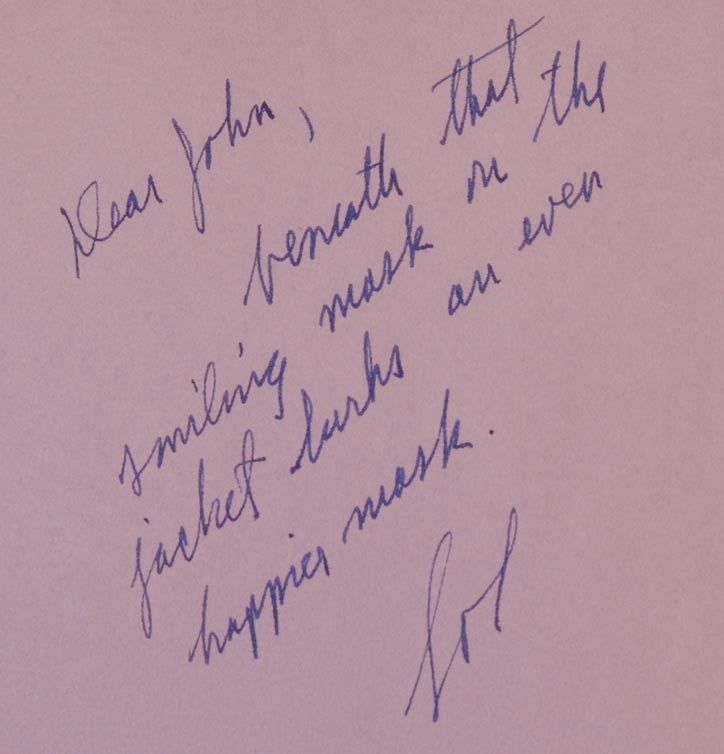 Dear John,
beneath that
smiling mask on the
jacket lurks an even
happier mask.
Sol